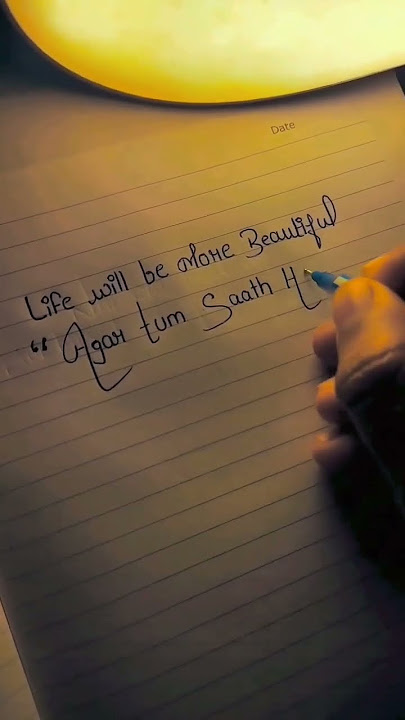 Date
Life will be More Beautiful
“ Agar tum Saath H